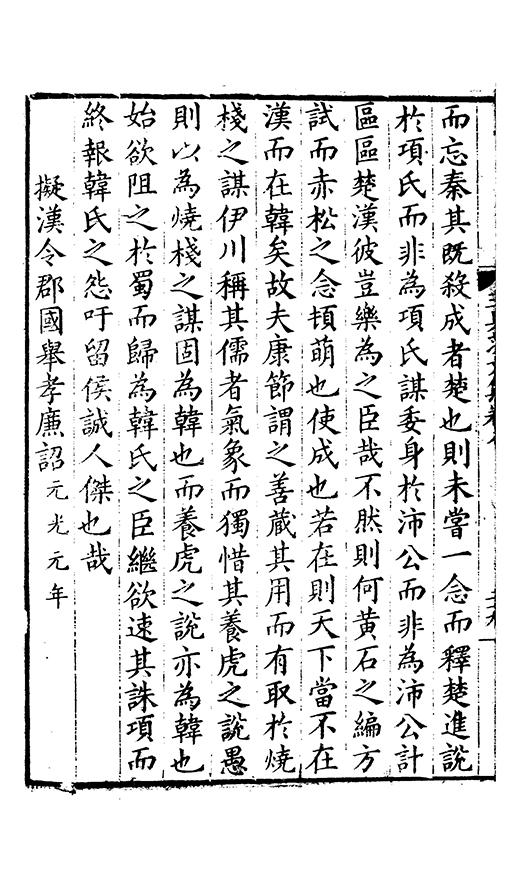 而忘秦其既殺成者楚也則未嘗一念而釋楚進說
於項氏而非為項氏謀委身於沛公而非為沛公計
區區楚漢彼豈樂為之臣哉不然則何黄石之編方
試而赤松之念頓萌也使成也若在則天下當不在
漢而在韓矣故夫康節謂之善蔵其用而有取於燒
棧之謀伊川稱其儒者氣象而獨惜其養虎之說愚
則以為燒棧之謀固為韓也而養虎之說亦為韓也
始欲阻之於蜀而歸為韓氏之臣繼欲速其誅項而
終報韓氏之怨吁留侯誠人傑也哉
擬漢令郡國舉孝廉詔元光元年